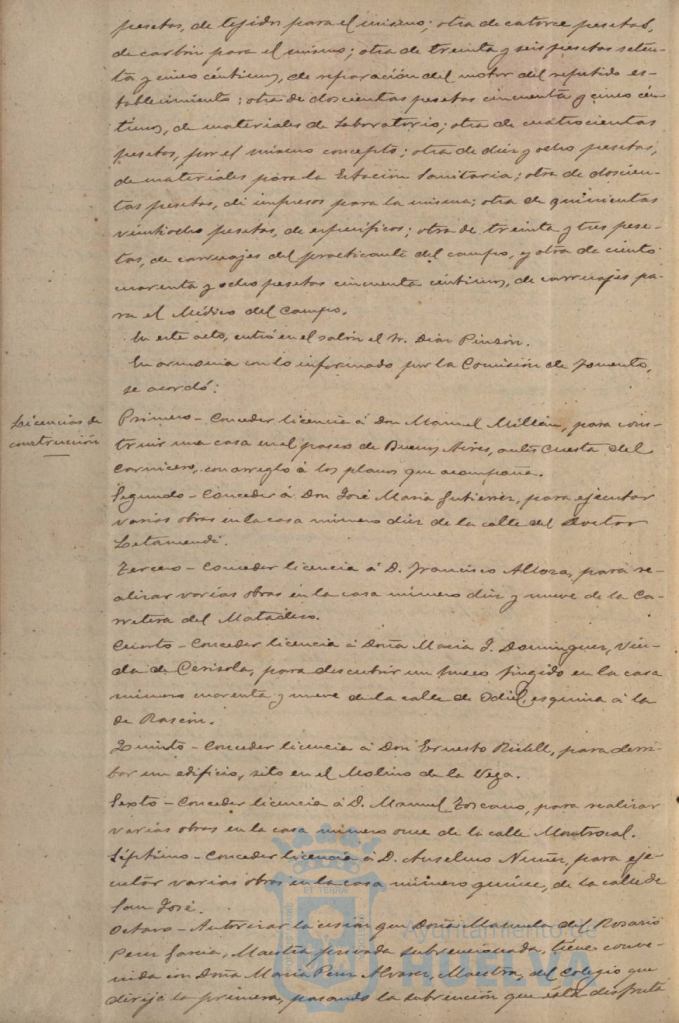 pesetas, de tejidos para el mismo; otra de catorce pesetas,
de carbón para el mismo; otra de treinta y seis pesetas seten-
ta y cinco céntimos, de reparación del motor del repetido es-
tablecimiento; otra de doscientas pesetas cincuenta y cinco cén-
timos, de materiales de Laboratorio; otra de cuatrocientas
pesetas, por el mismo concepto; otra de diez y ocho pesetas,
de materiales para la Estación Sanitaria; otra de doscien-
tas pesetas, de impresos para la misma; otra de quinientas
veintiocho pesetas, de específicos; otra de treinta y tres pese-
tas, de carruajes del practicante del campo, y otra de ciento
cuarenta y ocho pesetas cincuenta céntimos, de carruajes pa-
ra el Médico del Campo.
En este acto, entró en el salón el Sr. Diaz Pinzón.
En armonia con lo informado por la Comisión de Fomento,
se acordó:
Licencias de
construcción
Primero - Conceder licencia á Don Manuel Millán, para cons-
truir una casa en el paseo de Buenos Aires, antes Cuesta del
Carnicero, con arreglo á los planos que acompaña.
Segundo - Conceder á Don José María Gutierrez, para ejecutar
varias obras en la casa número diez de la calle del Doctor
Letamendi.
Tercero - Conceder licencia á D. Francisco Alloza, para re-
alizar varias obras en la casa número diez y nueve de la Ca-
rretera del Matadero.
Cuarto - Conceder licencia á Doña Maria J. Dominguez, Viu-
da de Cerisola, para descubrir un hueco fingido en la casa
número cuarenta y nueve de la calle de Odiel, esquina á la
de Rascón.
Quinto - Conceder licencia á Don Ernesto, para derri-
bar un edificio, sito en el Molino de la Vega.
Sexto - Conceder licencia á D. Manuel Toscano, para realizar
varias obras en la casa número once de la calle Montrocal.
Séptimo - Conceder licencia á D. Anselmo Nuñez, para eje-
cutar varias obras en la casa número quince, de la calle de
San José.
Octavo - Autorizar la cesión que Doña Manuela del Rosario
Perez Garcia, Maestra privada subvencionada, tiene conve-
nida con Doña Maria Perez Alvarez, Maestra, del Colegio que
dirije la primera, pasando la subvención que ésta disfruta
Ayuntamiento de
HUELVA